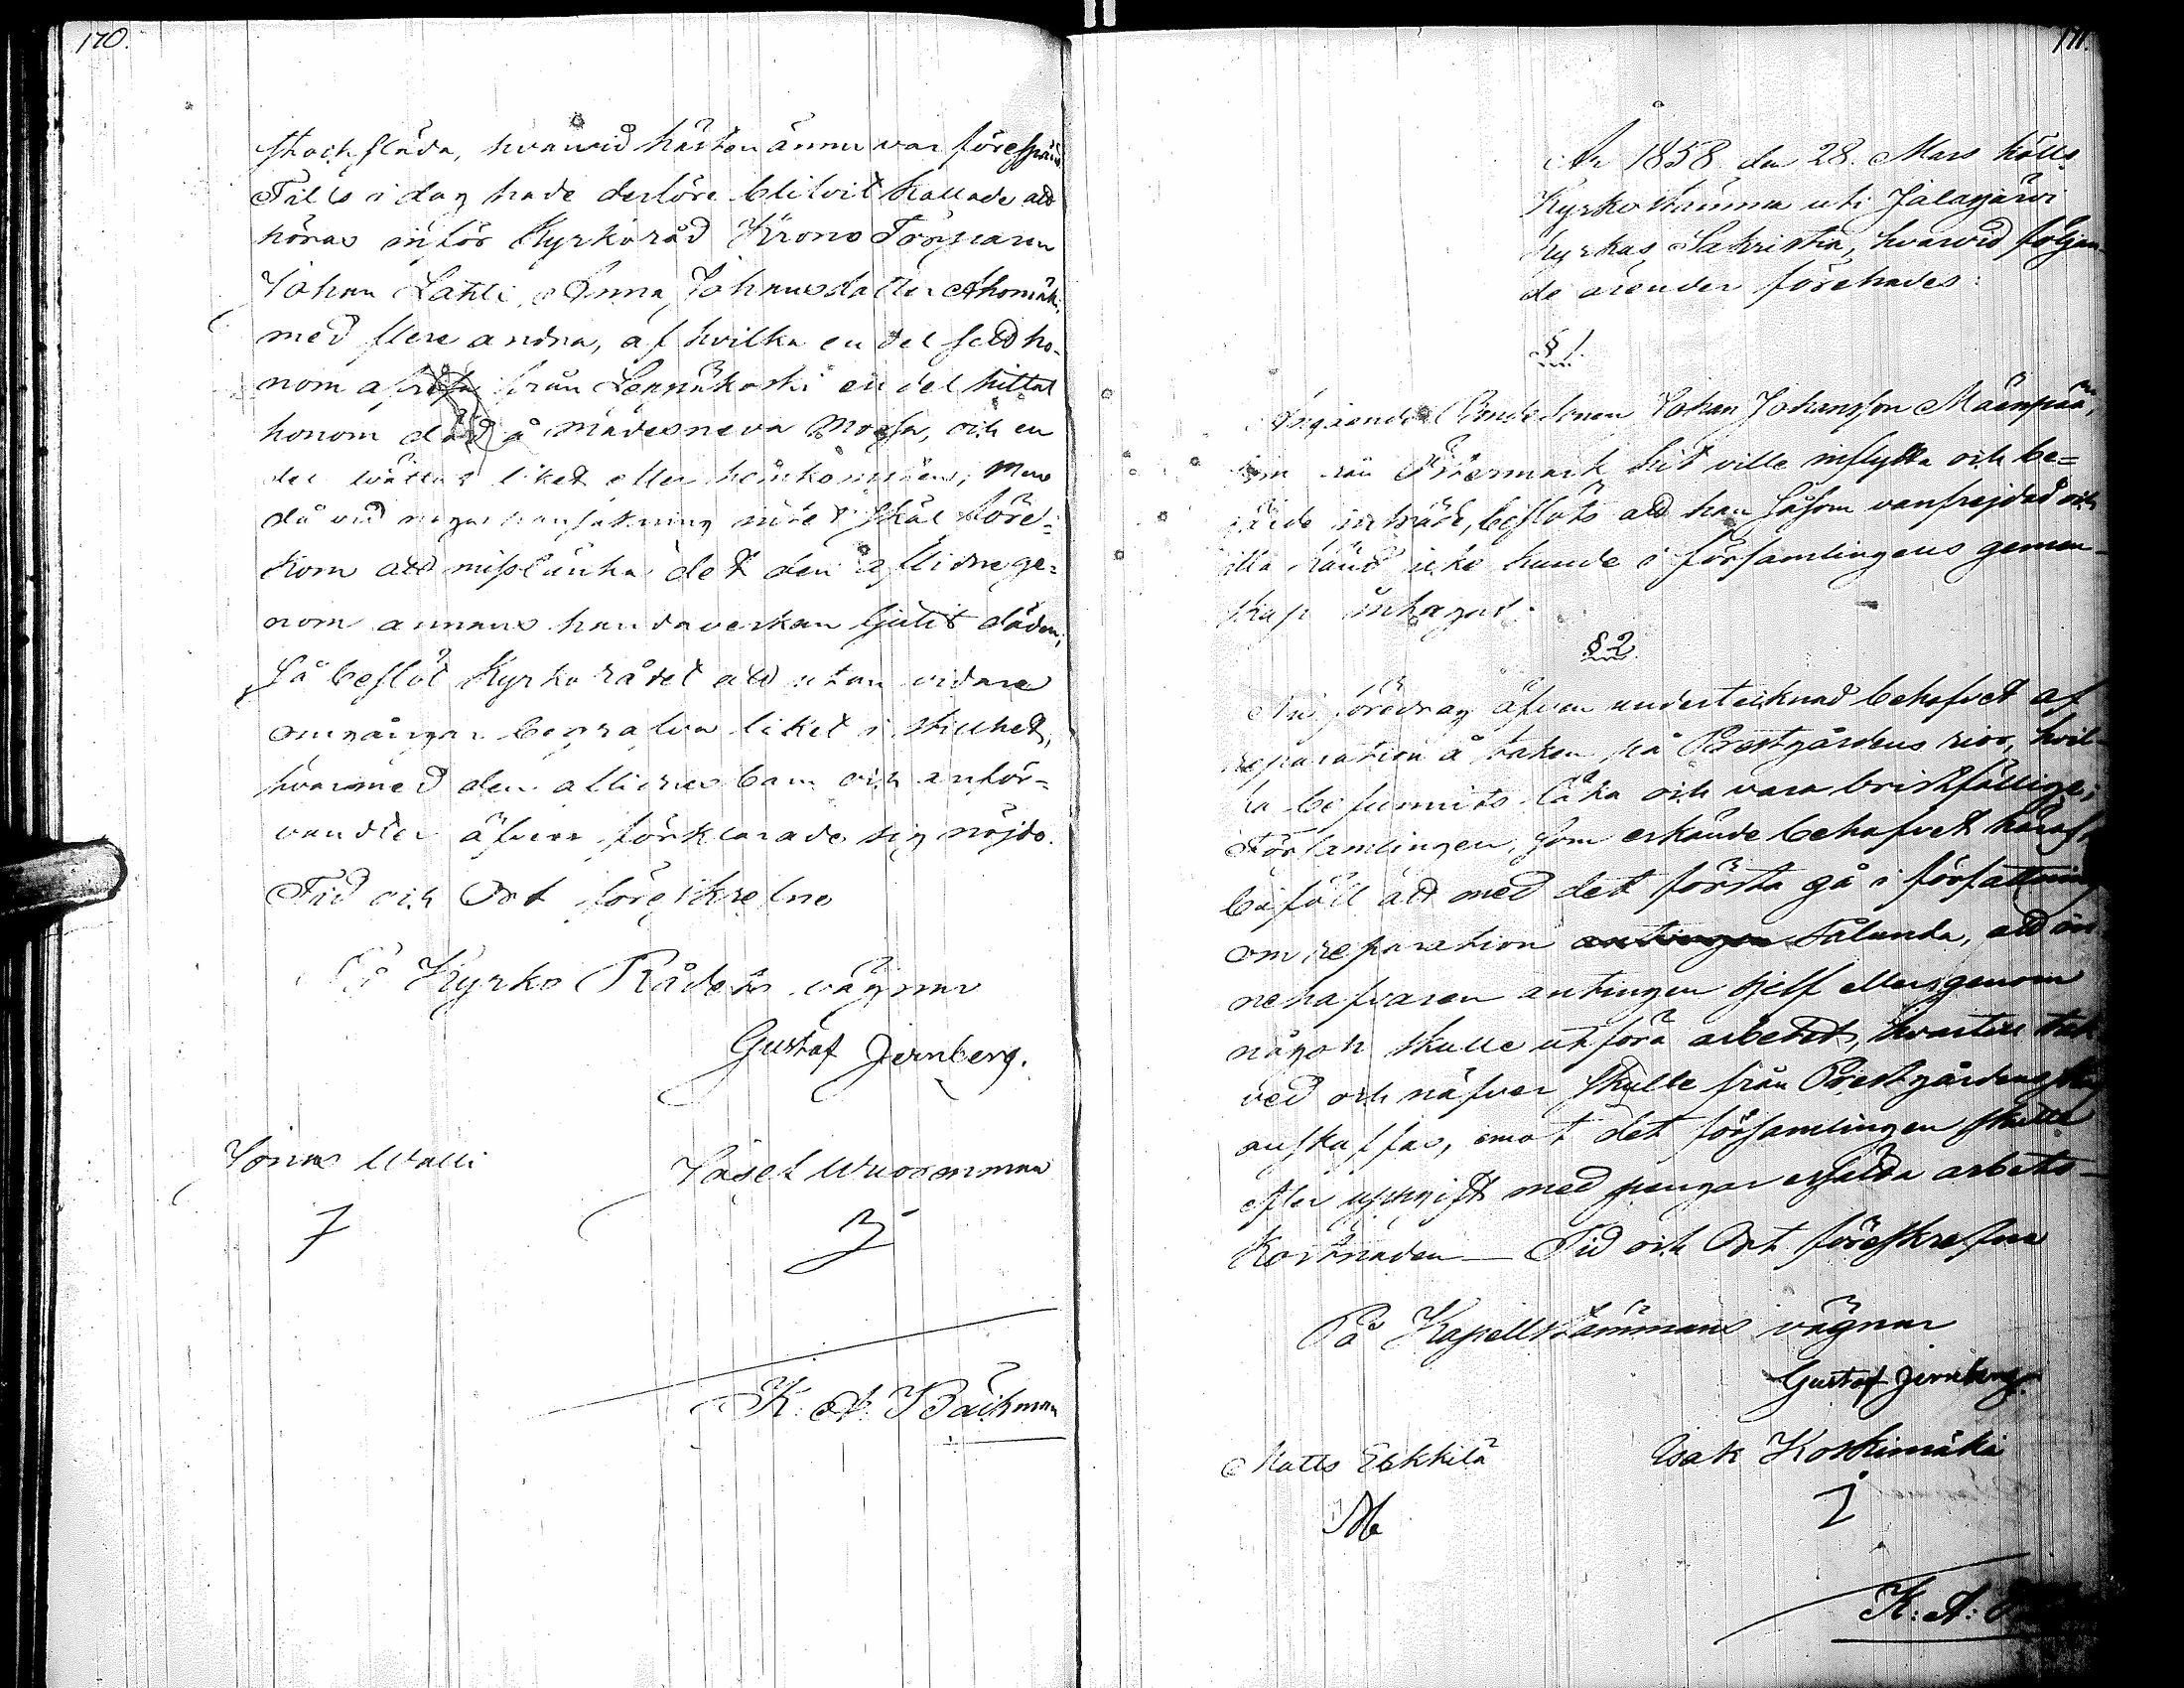 170.
stockfläda, hvarvid hästen ännu var förespänd
Till i dag hade derföre blifvit kallade att
höras inför Kyrkoråd Krono Torparen
Johan Lahti, Anna Johansdotter Ahomäki,
med flere andra, af hvilka en del sedt ho-
nom afresa från Leppäkoski en del hittat
honom död å Madesneva Mossa, och en
del liket efter hemkomsten; Men
då vid ransakning intet skäl före-
kom att misstänka det den aflidne ge-
nom annans handaverkan ljutit döden;
Så beslöt Kyrko rådet att utan vidare
omgångar begrafva liket i stillhet,
hvarmed den aflidnes barn och anför-
vandter äfven förklarade sig nöjde.
Tid och Ort föreskrefne
På Kyrko Rådets vägnar
Gustaf Jernberg.
Jonas Walli
Josef Wuorenmaa
K. A. Bäckman
171.
År 1858 den 28. Mars hölls
Kyrkostämma uti Jalasjärvi
Kyrkas Sakristia, hvarvid följan-
de ärender förehades:
§ 1.
Angående Bondesonen Johan Johansson Mäenpää,
som från Östermark hit ville inflytta och be=
gärde inträde, beslöts att han såsom vanfrejdad och
illa känd icke kunde i församlingens gemen-
skap intagas.
§ 2.
Nu föredrag äfven undertecknad behofvet af
reparation å taken på Prestgårdens rior, hvil-
ka befunnits läka och vara bristfällige;
Församlingen, som erkände behofvet häraf,
biföll att med det första gå i författning
om reparation antingen sålunda, att in-
nehafvaren antingen sjelf eller genom
någon skulle utföra arbetet, hvartill tak
ved och näfver skulle från Prestgårdens skog
anskaffas, emot det församlingen skulle
efter uppgift med pengar ersätta arbets-
kostnaden — Tid och Ort föreskrefne
På Kapellstämmans vägnar
Gustaf Jernberg.
Matts Eskkilä
Isak Koskimäki
K: A: